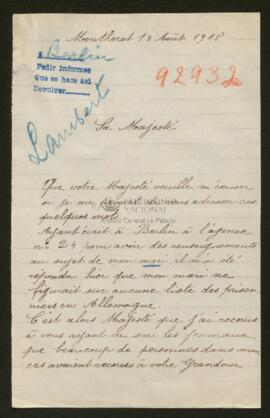 Moutherot 14 Août 1915
A Berlin
Pedir informes
Que se hace así
Devolver
92932
Lambert
Sa Majesté
Que votre Majesté veuille m'excuser
si je me permets de vous adresser ces
quelques mots.
Ayant écrit à Berlin à l'agence
n° 24 pour avoir des renseignements
au sujet de mon mari, il m'a été
répondu hier que mon mari ne
figurait sur aucune liste des prison
niers en Allemagne.
C'est alors Majesté que j'ai recours
à vous ayant vu sur les journaux
que beaucoup de personnes dans mon
cas avaient recours à votre Grandeur
PATRIMONIO
NACIONAL
Archivo General de Palacio